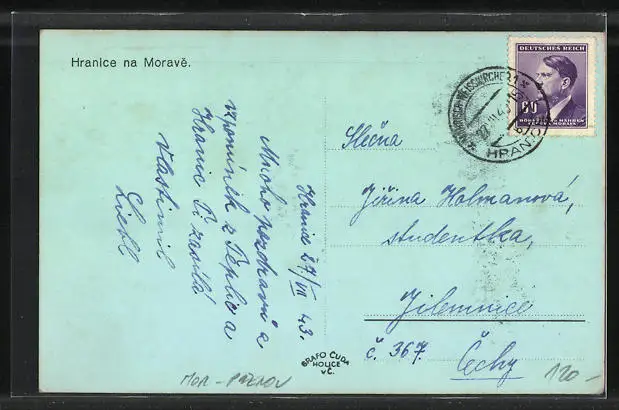 Hranice na Moravě.
DEUTSCHES REICH
60
BÖHMEN UND MÄHREN
ČECHY A MORAVA
HRANICE
Hranice 27/VII 43.
Mnoho pozdravů a
vzpomínek z Teplic a
Hranic Ti zasílá
Vlastimil
Slečna
Jiřina Holmanová,
studentka,
Jilemnice
č. 367.
Čechy
GRAFO ČUDA
HOLICE
v Č.
120-